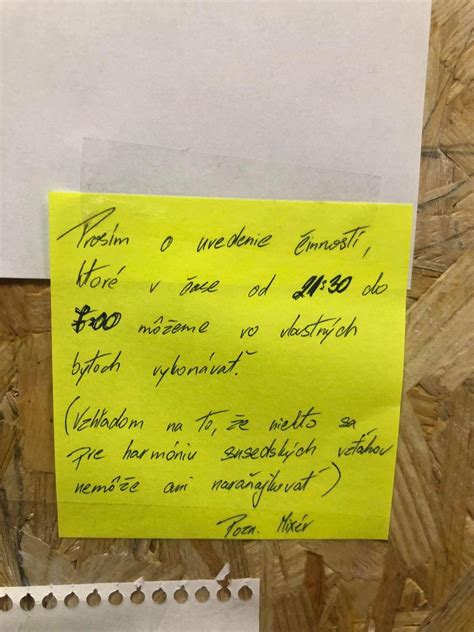 Prosím o uvedenie činností,
ktoré v čase od 21:30 do
7:00 môžeme vo vlastných
bytoch vykonávať.
(Vzhľadom na to, že niekto sa
pre harmóniu susedských vzťahov
nemôže ani naraňajkovať)
Pozn. Mixér